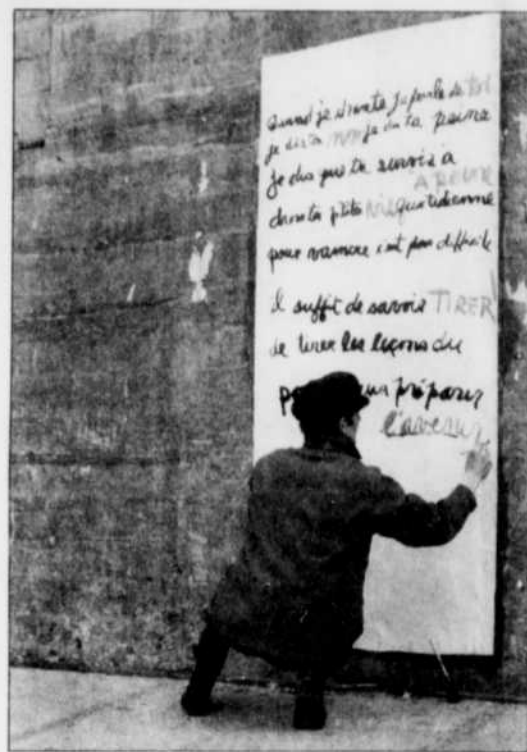 Quand je chante je parle de toi
je dis ta vie je dis ta peine
je dis que tu survis à
À PEINE
dans ta ptite vie quotidienne
pour vaincre c'est pas difficile
il suffit de savoir TIRER
de tirer les leçons du
préparer
l'avenir